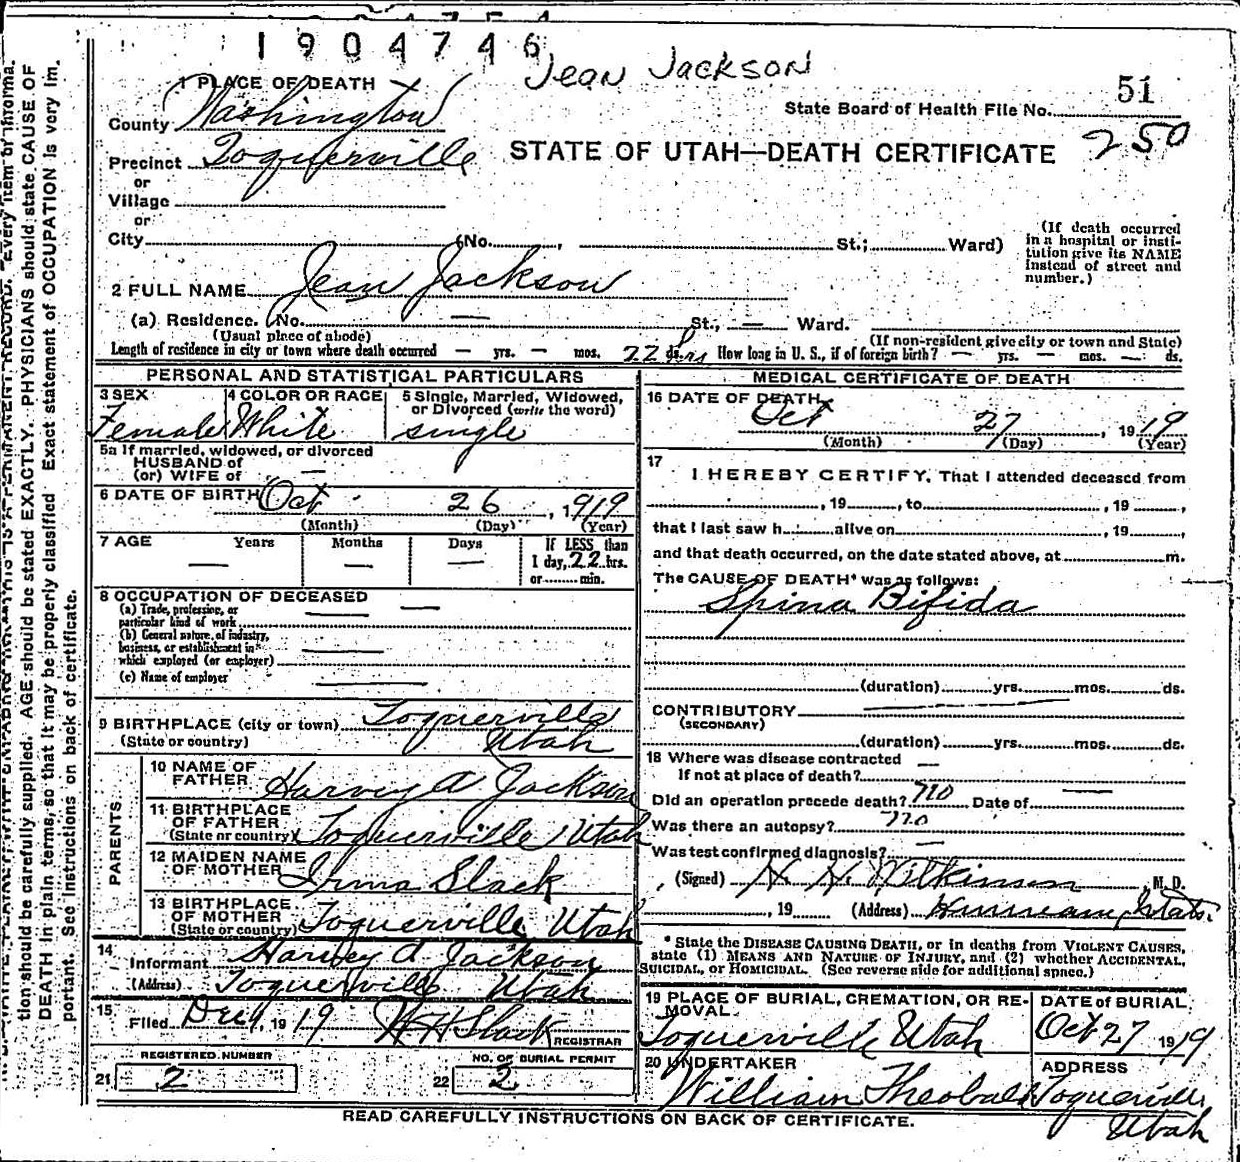 1904746
Jean Jackson
1 PLACE OF DEATH
51
State Board of Health File No.
County Washington
250
Precinct Toquerville
STATE OF UTAH—DEATH CERTIFICATE
or
Village
or
City (No. , St.; Ward)
(If death occurred
in a hospital or insti-
tution give its NAME
instead of street and
number.)
2 FULL NAME Jean Jackson
(a) Residence. (No. — St., — Ward.
(Usual place of abode) (If non-resident give city or town and State)
Length of residence in city or town where death occurred — yrs. — mos. 22 ds. hrs How long in U. S., if of foreign birth? — yrs. — mos. — ds.
PERSONAL AND STATISTICAL PARTICULARS
3 SEX 4 COLOR OR RACE 5 Single, Married, Widowed,
or Divorced (write the word)
Female White single
5a If married, widowed, or divorced
HUSBAND of
(or) WIFE of —
6 DATE OF BIRTH Oct 26, 1919
(Month) (Day) (Year)
7 AGE Years Months Days If LESS than
— — — 1 day, 22 hrs.
or min.
8 OCCUPATION OF DECEASED
(a) Trade, profession, or
particular kind of work
(b) General nature of industry,
business, or establishment in
which employed (or employer)
(c) Name of employer
9 BIRTHPLACE (city or town) Toquerville
(State or country) Utah
PARENTS
10 NAME OF
FATHER Harvey A Jackson
11 BIRTHPLACE
OF FATHER
(State or country) Toquerville Utah
12 MAIDEN NAME
OF MOTHER Irma Slack
13 BIRTHPLACE
OF MOTHER
(State or country) Toquerville Utah
14
Informant Harvey A Jackson
(Address) Toquerville Utah
15
Filed , 1919 W H Slack REGISTRAR
REGISTERED NUMBER NO. OF BURIAL PERMIT
21 2 22 2
MEDICAL CERTIFICATE OF DEATH
16 DATE OF DEATH
Oct 27, 1919
(Month) (Day) (Year)
17
I HEREBY CERTIFY, That I attended deceased from
, 19 , to , 19 ,
that I last saw h alive on , 19 ,
and that death occurred, on the date stated above, at m.
The CAUSE OF DEATH* was as follows:
Spina Bifida
(duration) yrs. mos. ds.
CONTRIBUTORY
(SECONDARY)
(duration) yrs. mos. ds.
18 Where was disease contracted
If not at place of death? —
Did an operation precede death? no Date of —
Was there an autopsy? no
Was test confirmed diagnosis? —
(Signed) Wilkinson, M. D.
, 19 (Address)
* State the DISEASE CAUSING DEATH, or in deaths from VIOLENT CAUSES,
state (1) MEANS AND NATURE OF INJURY, and (2) whether ACCIDENTAL,
SUICIDAL, or HOMICIDAL. (See reverse side for additional space.)
19 PLACE OF BURIAL, CREMATION, OR RE-
MOVAL
Toquerville Utah
DATE of BURIAL
Oct 27 1919
20 UNDERTAKER
William Theobald
ADDRESS
Toquerville
Utah
READ CAREFULLY INSTRUCTIONS ON BACK OF CERTIFICATE.
Every item of informa-
tion should be carefully supplied. AGE should be stated EXACTLY. PHYSICIANS should state CAUSE OF
DEATH in plain terms, so that it may be properly classified. Exact statement of OCCUPATION is very im-
portant. See instructions on back of certificate.